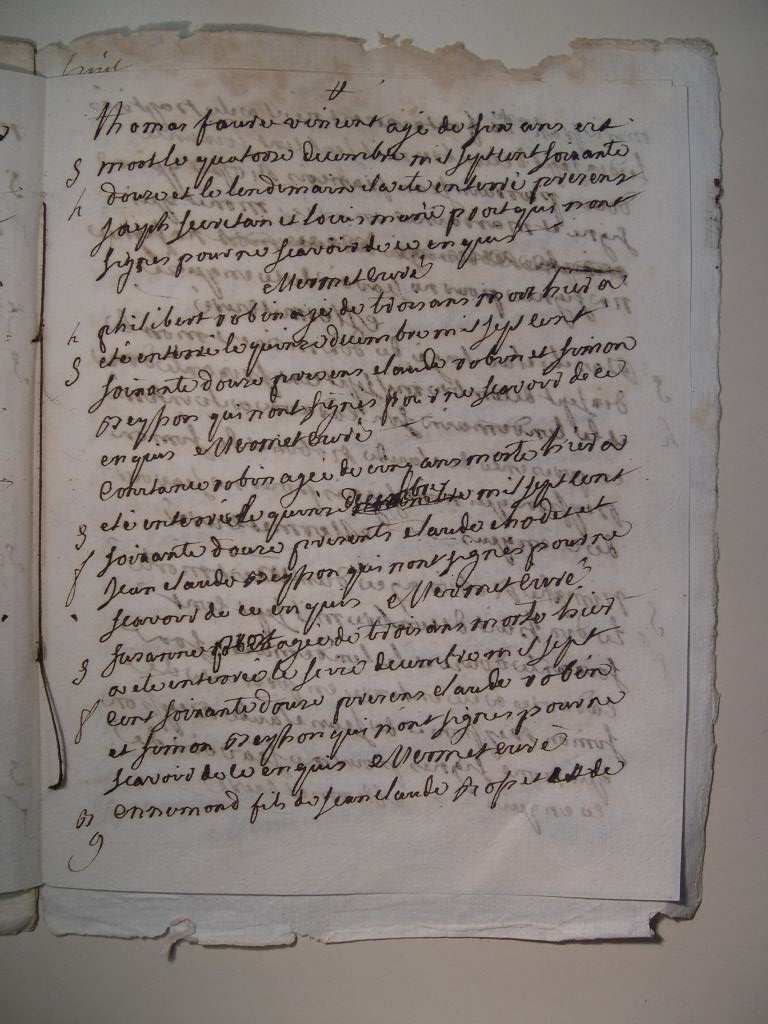 thomas faure vincent agé de six ans est
mort le quatorse decembre mil sept cent soixante
douse et le lendemain a été enterré presens
joseph secretan et louis marie port qui n'ont
signés pour ne scavoir de ce enquis
Mermet curé
philibert robin agé de trois ans mort hier a
été enterré le quinse decembre mil sept cent
soixante douse presens claude robin et simon
qui n'ont signés pour ne scavoir de ce
enquis Mermet curé
Constance robin agée de cinq ans morte hier a
été enterrée le quinse decembre mil sept cent
soixante douse presents claude chodet et
jean claude qui n'ont signés pour ne
scavoir de ce enquis Mermet curé
susanne port agée de trois ans morte hier
a été enterrée le seise decembre mil sept
cent soixante douse presens claude robin
et simon qui n'ont signés pour ne
scavoir de ce enquis Mermet curé
ennemond fils de jean claude et de